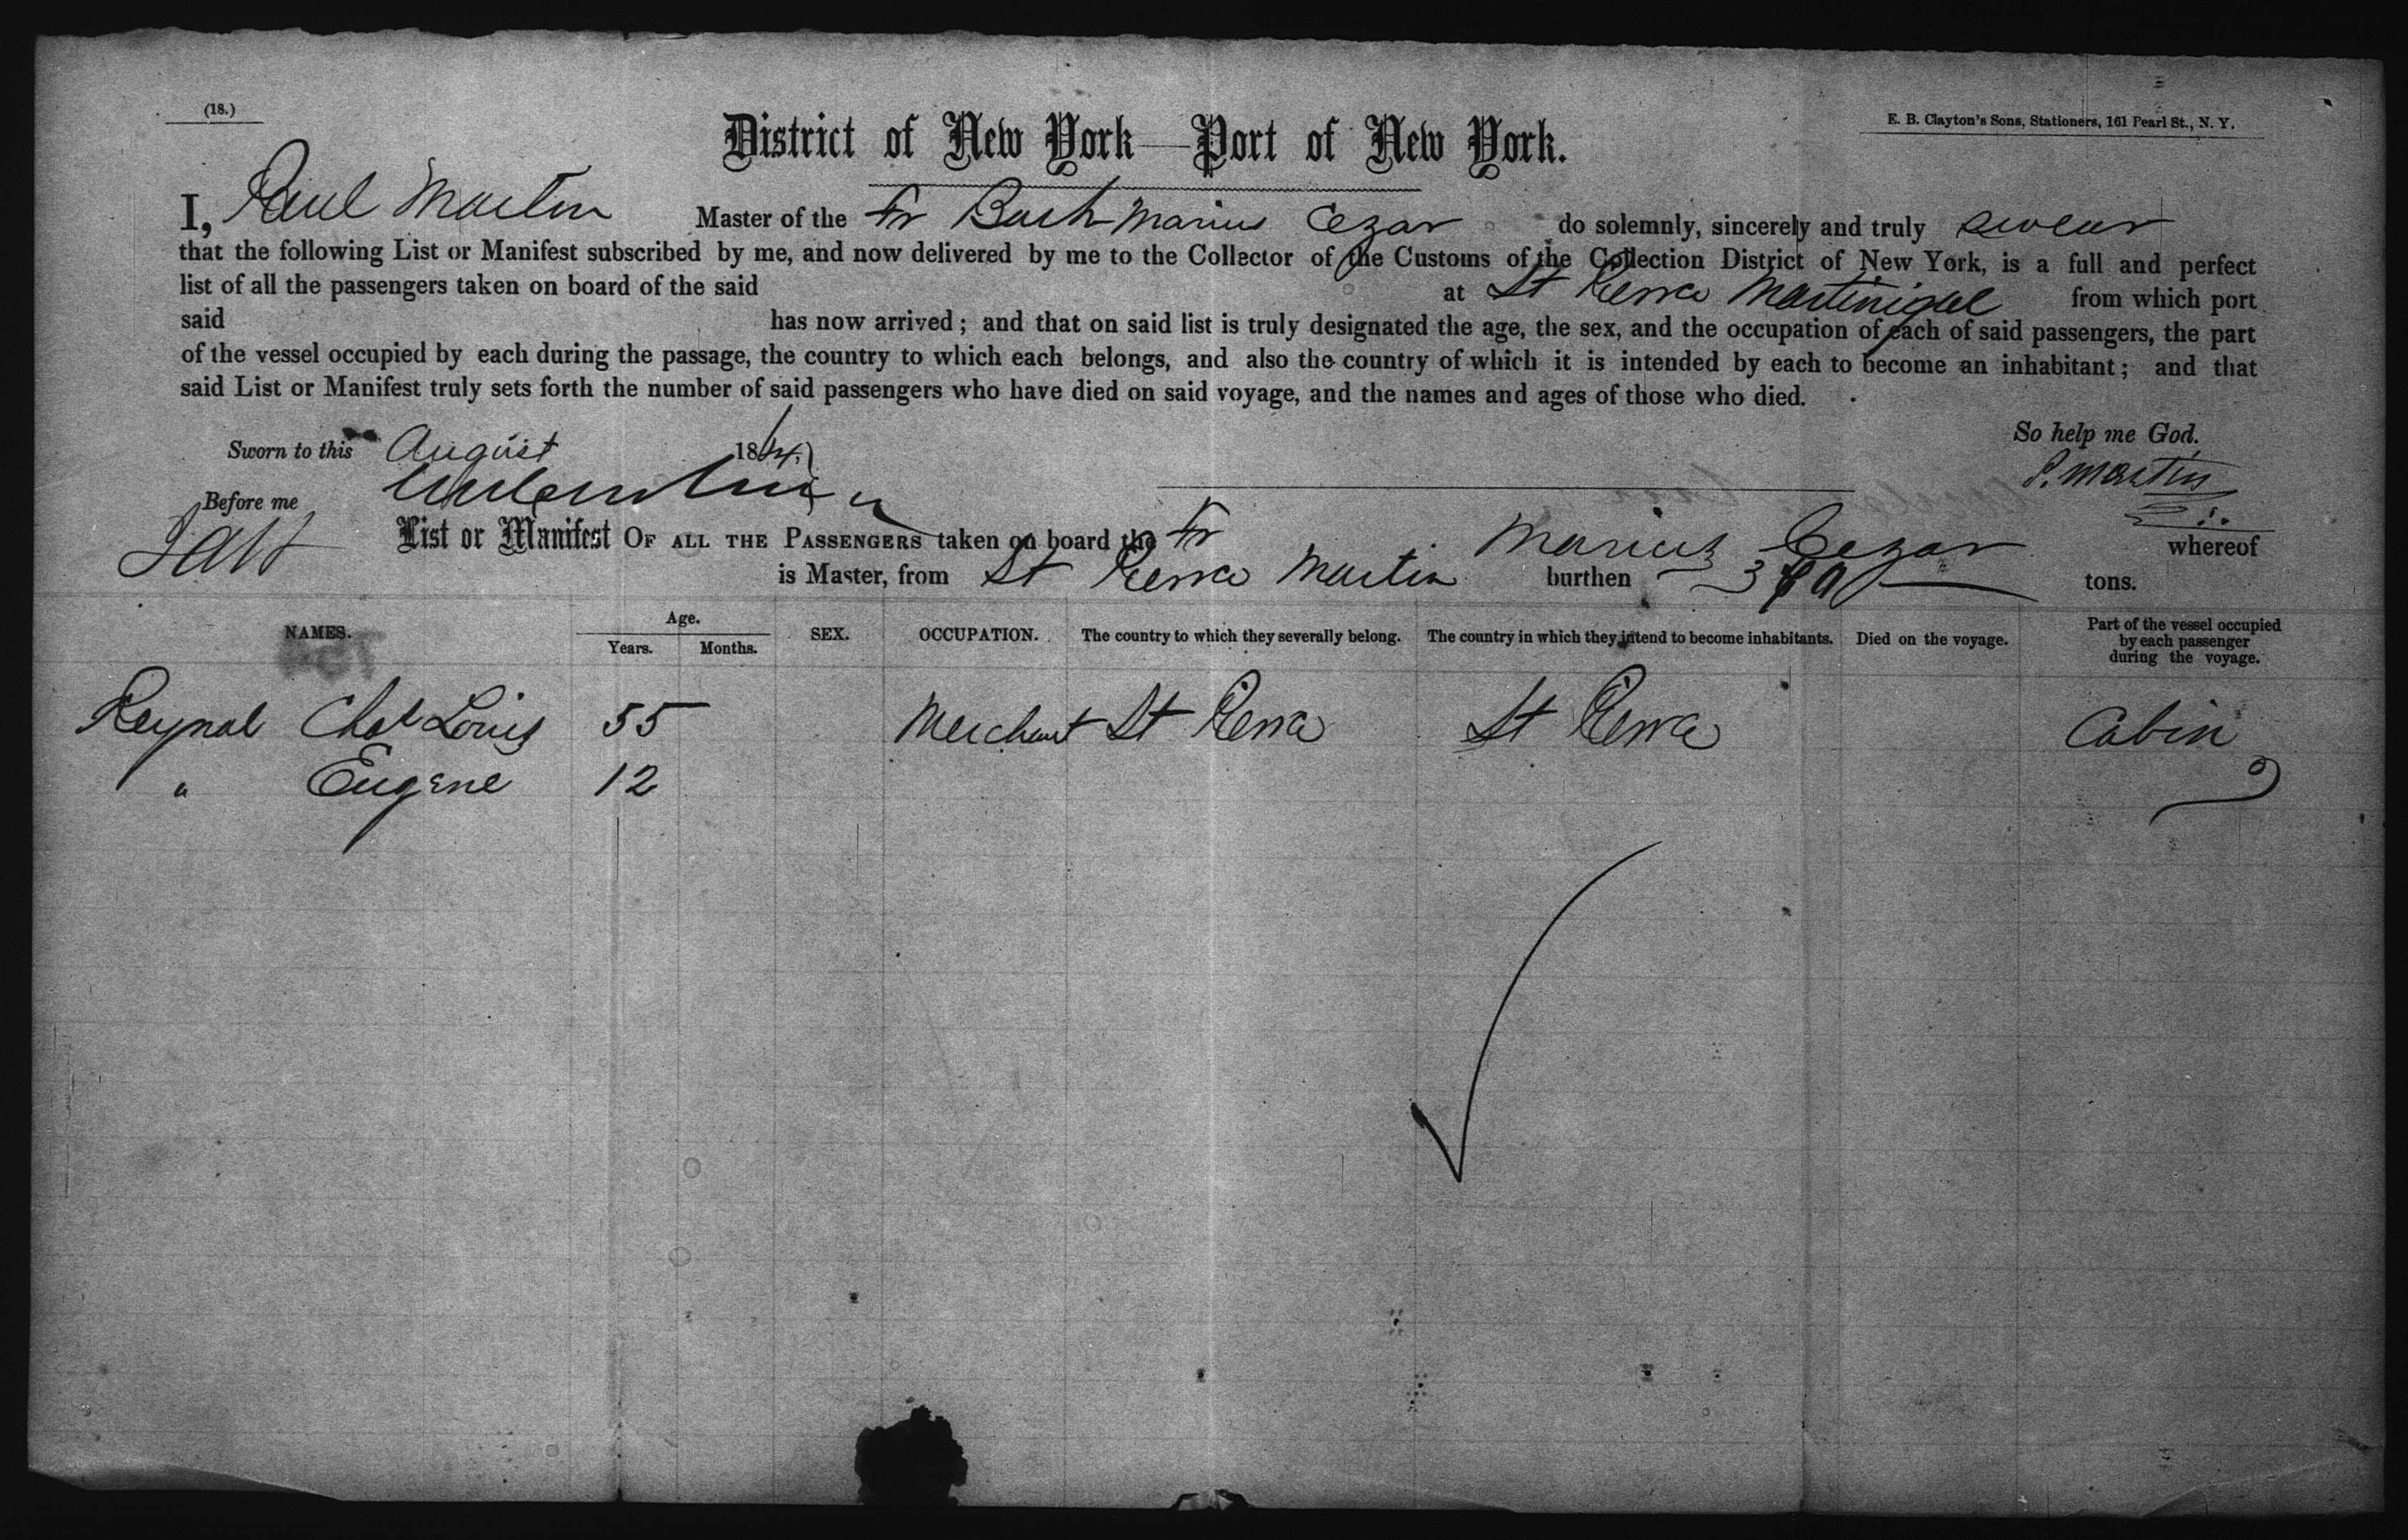 (18.)
E. B. Clayton's Sons, Stationers, 161 Pearl St., N. Y.
District of New York—Port of New York.
I, Paul Martin Master of the Fr Bark Marius Cezar do solemnly, sincerely and truly swear
that the following List or Manifest subscribed by me, and now delivered by me to the Collector of the Customs of the Collection District of New York, is a full and perfect
list of all the passengers taken on board of the said at St Pierre Martinique from which port
said has now arrived; and that on said list is truly designated the age, the sex, and the occupation of each of said passengers, the part
of the vessel occupied by each during the passage, the country to which each belongs, and also the country of which it is intended by each to become an inhabitant; and that
said List or Manifest truly sets forth the number of said passengers who have died on said voyage, and the names and ages of those who died.
So help me God.
Sworn to this August 1864
P. Martin
Before me
List or Manifest OF ALL THE PASSENGERS taken on board the Fr Marius Cezar whereof
is Master, from St Pierre Martin burthen tons.
NAMES. Age. Years. Months. SEX. OCCUPATION. The country to which they severally belong. The country in which they intend to become inhabitants. Died on the voyage. Part of the vessel occupied by each passenger during the voyage.
Reynal Chas Louis 55 Merchant St Pierre St Pierre Cabin
" Eugene 12